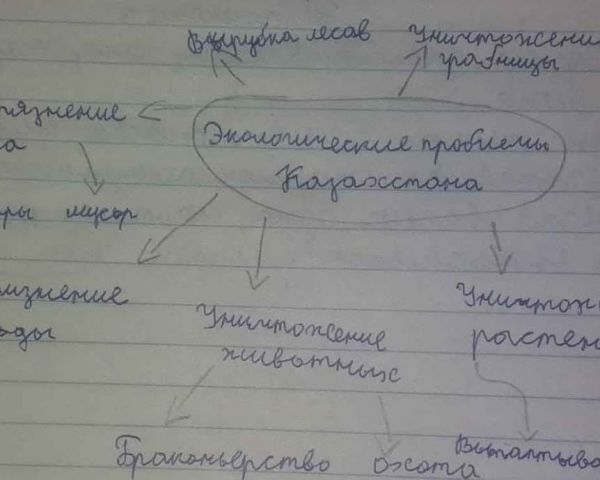 Вырубка лесав Уничтожени
грабницы
язнение
а
Экологические проблемы
Казахстана
ры мусор
язнение
оды
Уничтожение
животных
Уничтож
растен
Браконьерство охота Вытаптыва